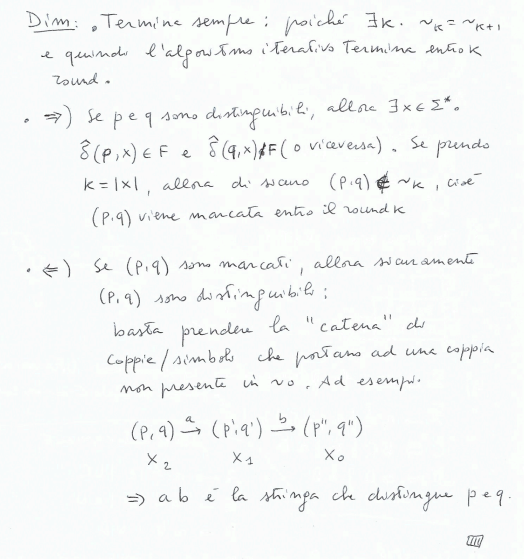 Dim: • Termina sempre: poiché ∃k. ~k = ~k+1
e quindi l'algoritmo iterativo termina entro k
round.
• ⇒) Se p e q sono distinguibili, allora ∃x ∈ Σ*.
δ̂(p,x) ∈ F e δ̂(q,x) ∉ F (o viceversa). Se prendo
k = |x|, allora di sicuro (p,q) ∉ ~k, cioè
(p,q) viene marcata entro il round k
• ⇐) Se (p,q) sono marcati, allora sicuramente
(p,q) sono distinguibili;
basta prendere la "catena" di
coppie/simboli che portano ad una coppia
non presente in ~0. Ad esempi.
(p,q) a→ (p',q') b→ (p'',q'')
x2 x1 x0
⇒ ab è la stringa che distingue p e q.